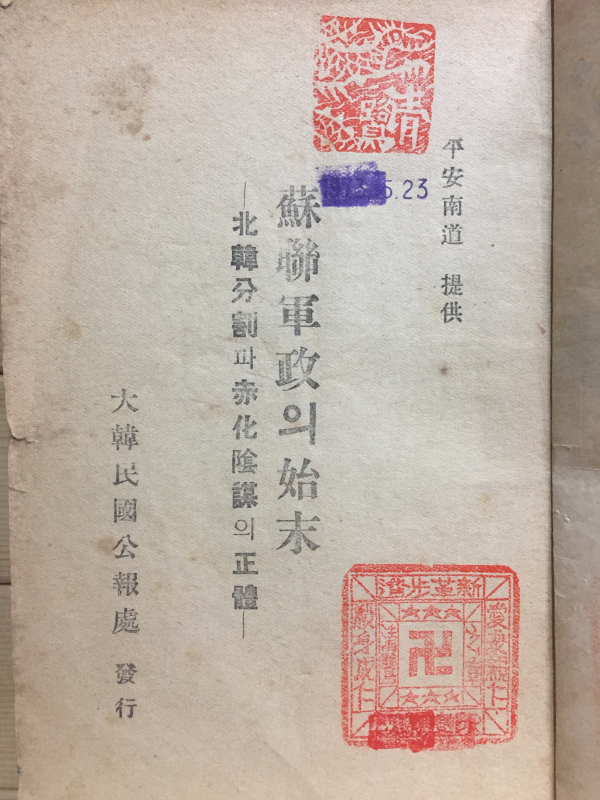 平安南道 提供
蘇聯軍政의始末
—北韓分割과赤化陰謀의正體—
大韓民國公報處 發行
5.23
殺身成仁